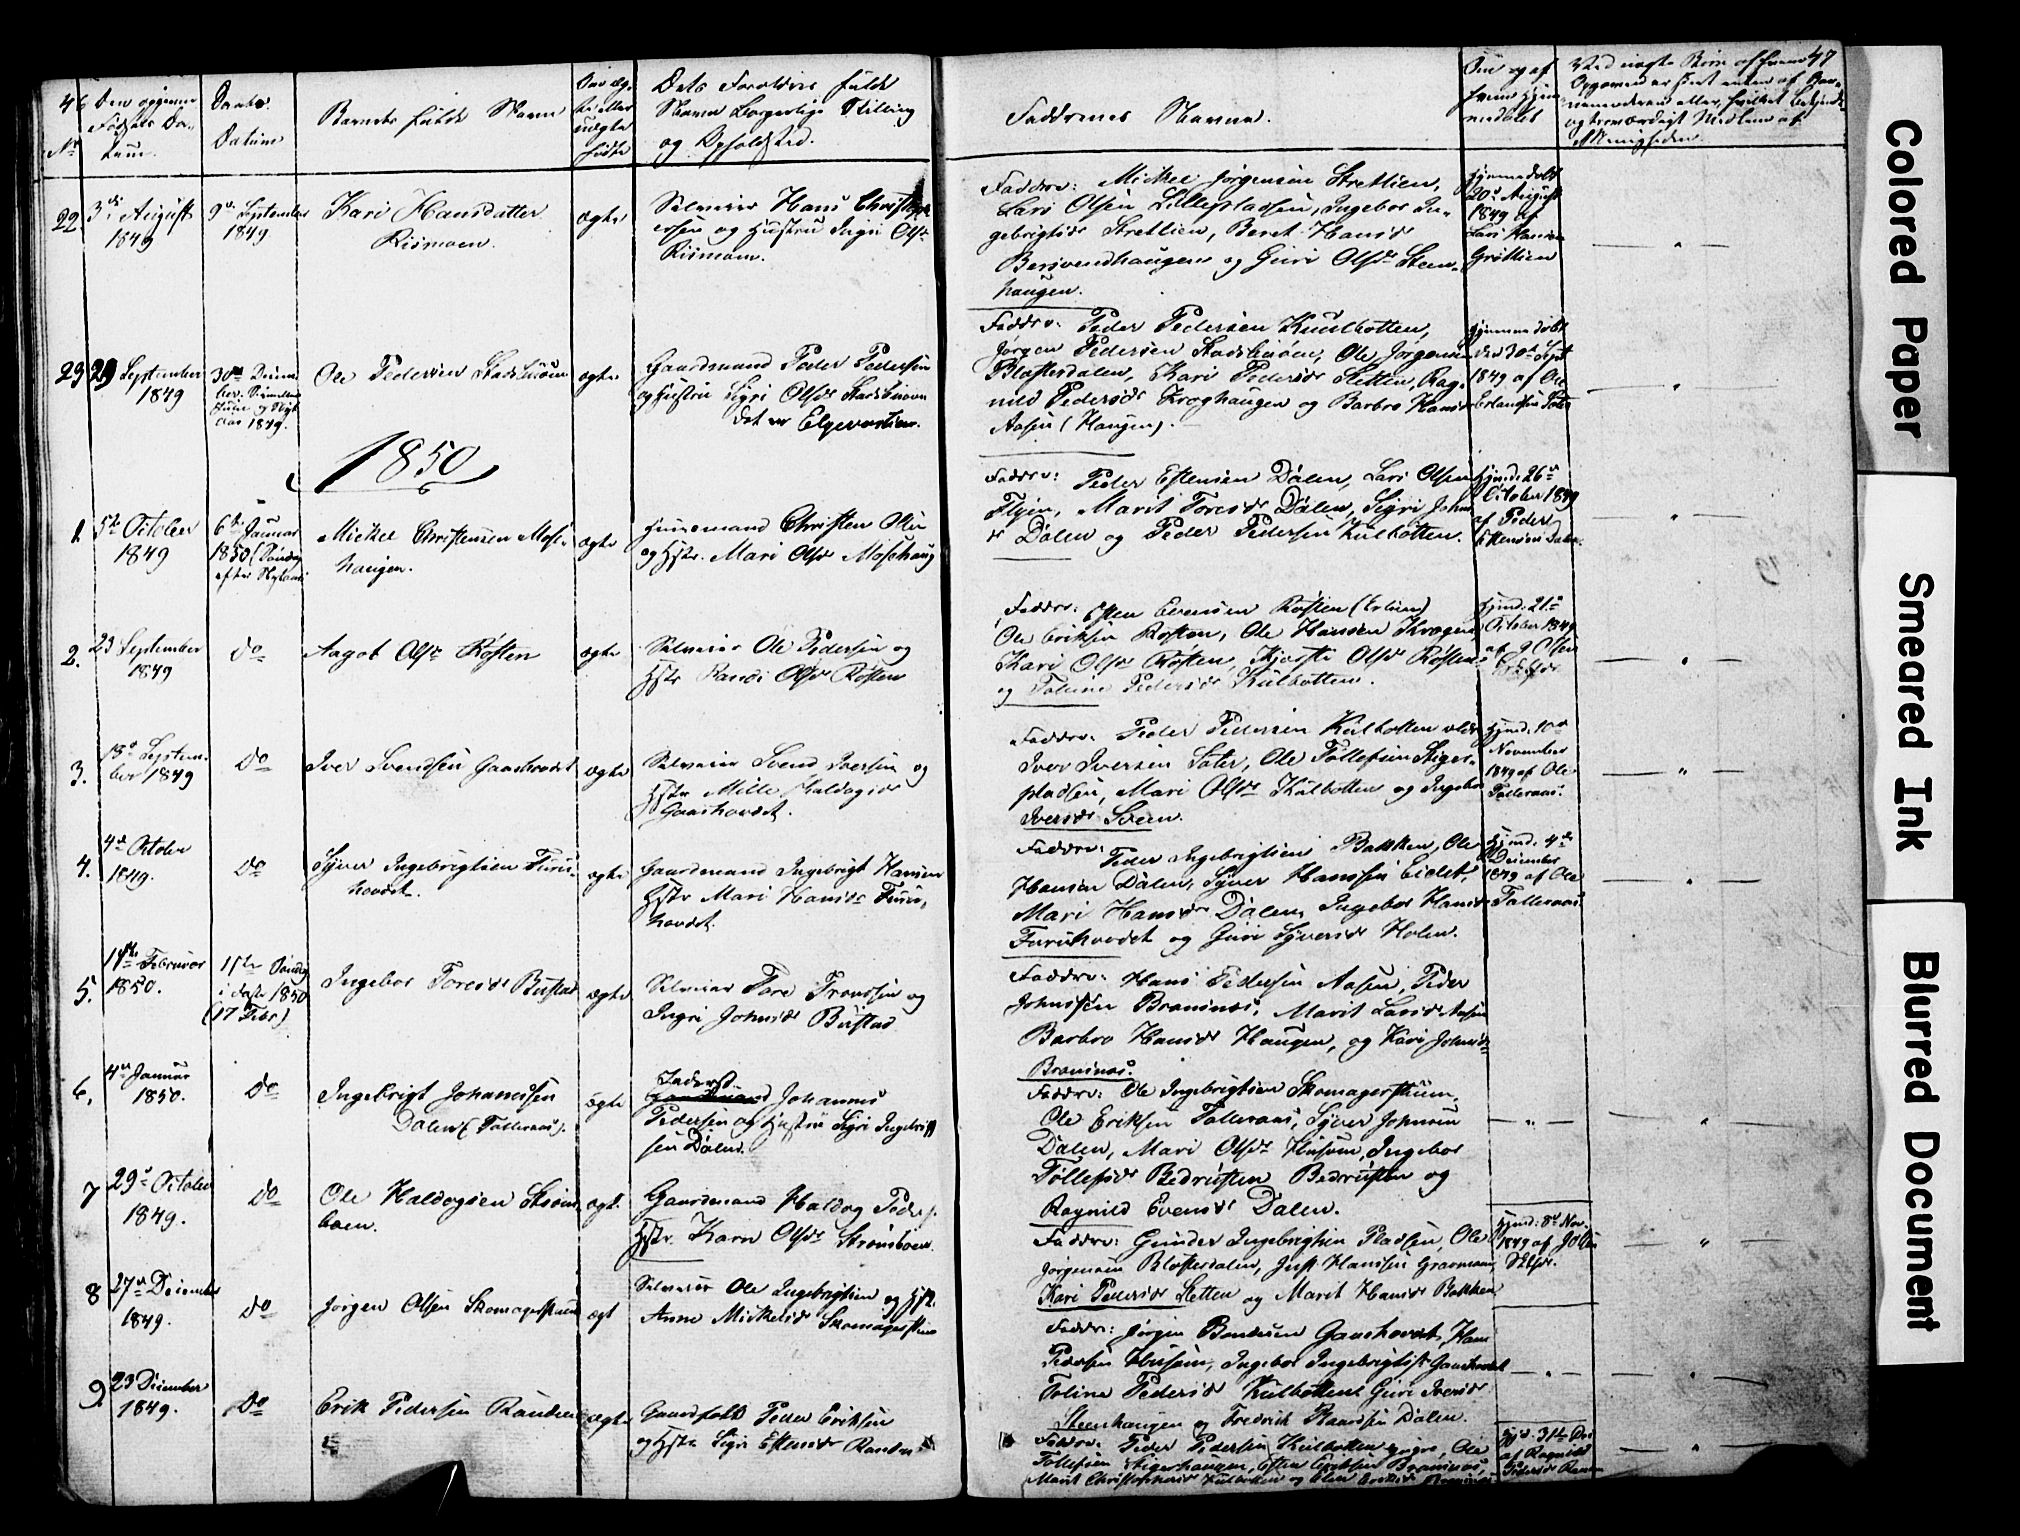 46
Nr
Den opgivne
Fødsels Da-
tum.
Daabs
Datum
Barnets fulde Navn
Om æg-
te eller
uægte
født
Dets Forældres fulde
Navn Borgerlige Stilling
og Opholdsted.
22
3die August
1849
9de September
1849.
Kari Hansdatter
Riismoen.
ægte
Selveier Hans Christoph-
ersen og Hustru Ingri Olsdr
Riismoen.
23
29 September
1849
30te Decem-
ber
1849.
Ole Pedersen
ægte
Gaardmand Peder Pedersen
og Hustru Sigri Olsdr
det er
1850
1.
5te October
1849
6te Januar
1850 (Søndag
efter Nytaar)
Mickel Christensen Mose-
haugen.
ægte
Huusmand Christen Olsen
og Hstr. Mari Olsdr Mosehaug
2.
23 September
1849
do
Aagot Olsdr Røsten
ægte
Selveier Ole Pedersen og
Hstr Randi Olsdr Røsten
3.
13de Septem-
ber 1849
Do
Iver Svendsen Gaashovdet
ægte
Selveier Svend Iversen og
Hstr Mille Haldogsdr
Gaashovdet.
4.
4de October
1849.
Do
Syver Ingebrigtsen Furu-
hovdet.
ægte
Gaardmand Ingebrigt Hansen
Hstr Mari Hansdr Furu-
hovdet.
5.
14de Februar
1850.
1ste Søndag
i Faste 1850
(17 Febr)
Ingebor Toresdr Bustad
ægte
Selveier Tore Tronssen og
Ingri Johnsdr Bustad
6.
4de Januar
1850.
Do
Ingebrigt Johannssen
Dalen (Talleraas).
ægte
Inderst
Johannes
Pedersen og Hustru Sigri Ingebrigt-
sen Dalen.
7
29de October
1849.
Do
Ole Haldogsen Strøms-
boen.
ægt.
Gaardmand Haldog Peders.
Hstr. Karn Olsdr Strømsboen.
8
27de December
1849.
Do
Jørgen Olsen Skomagerstuen
ægt
Selveier Ole Ingebrigtsen og Hstr.
Anne Mickelsdr Skomagerstuen
9.
23 December
1849.
Do
Erik Pedersen Randen
ægte
Gaardfolk Peder Eriksen
og Hstr Sigri Estensdr Randen
Faddrenes Navne.
Om og af
hvem Hjem-
medøbt
47
Ved uægte Børn af hvem
Opgivend er skeet enten af Bar-
nemoderen eller hvilket bekjendt
og troværdigt Medlem af
Menigheden.
Faddre: Mickel Jørgensen Stretlien,
Lars Olsen Lillegladsen, Ingebor In-
gebrigtsdr Stretlien, Beret Hansdr
Bersvendhaugen og Guri Olsdr Steen-
haugen.
Hjemmedøbt
20de August
1849 af
Lars Hansen
Grøtlien
Faddre: Peder Pedersen Kuulbotten,
Jørgen Pedersen Ole Jørgensen
Blæsterdalen, Kari Pedersdr Sletten, Rag-
nild Pedersdr Kroghaugen og Barbro Hansdr
Aasen (Haugen).
Hjemmedøbt
den 30te Sept
1849 af Ole
Erlandsen Sæter
Faddre: Peder Estensen Dalen, Lars Olsen
Flyen, Marit Toresdr Dalen, Sigri Johns-
dr Dalen og Peder Pedersen Kulbotten.
Hjmd. 26de
October 1849
af Peder
Estensen Dalen.
Faddre: Esten Evensen Røsten
Ole Eriksen Røsten, Ole Hansen
Kari Olsdr Røsten, Kjersti Olsdr Røsten
og Toline Pedersdr Kulbotten.
Hjmd. 21de
October 1849
Faddre: Peder Pedersen Kulbotten ældre
Iver Iversen Sæter, Ole Tollefsen Steger-
pladsen, Mari Olsdr Kulbotten og Ingebor
Iversdr Sveen.
Hjmd. 10de
November
1849 af Ole
Talleraas.
Faddre: Peder Ingebrigtsen Bakken, Ole
Hansen Dalen, Syver Hanssen Eidet,
Mari Hansdr Dalen, Ingebor Hansdr
Furuhovdet og Guri Syversdr Holen.
Hjmd. 4de
December
1849 af Ole
Talleraas.
Faddre: Hans Pedersen Aasen, Peder
Johnssen Bransnæs, Marit Larsdr Aasen
Barbro Hansdr Haugen, og Kari Johnsdr
Bransnæs.
Faddre: Ole Ingebrigtsen Skomagerstuen.
Ole Eriksen Talleraas, Syver Johnsen
Dalen, Mari Olsdr Husum, Ingebor
Tollefsdr Bedrøsten Bedrøsten og
Ragnild Evensdr Dalen.
Faddre: Gunder Ingebrigtsen Pladsen, Ole
Jørgensen Blæsterdalen, Just Hanssen Gravmoen,
Kari Pedersdr Sletten og Marit Hansdr Bakken
Hjmd. 8de Nov.
1849 af
Faddre: Jørgen Bendtsen Gaashovdet, Hans
Pedersen Husum, Ingebor Ingebrigtsdr Gaashovdet
Toline Pedersdr Kulbotten Guri Iversdr
Steenhaugen og Fredrik Baardsen Dalen.
Faddre: Peder Pedersen Kulbotten yngre, Ole
Tollefsen Stegerhaugen, Esten Eriksen Bransnæs,
Marit Christophersdr Kulbotten og
Hjd. 31te Dec
af Ragnild
Pedersdr Randen
Colored Paper
Smeared Ink
Blurred Document